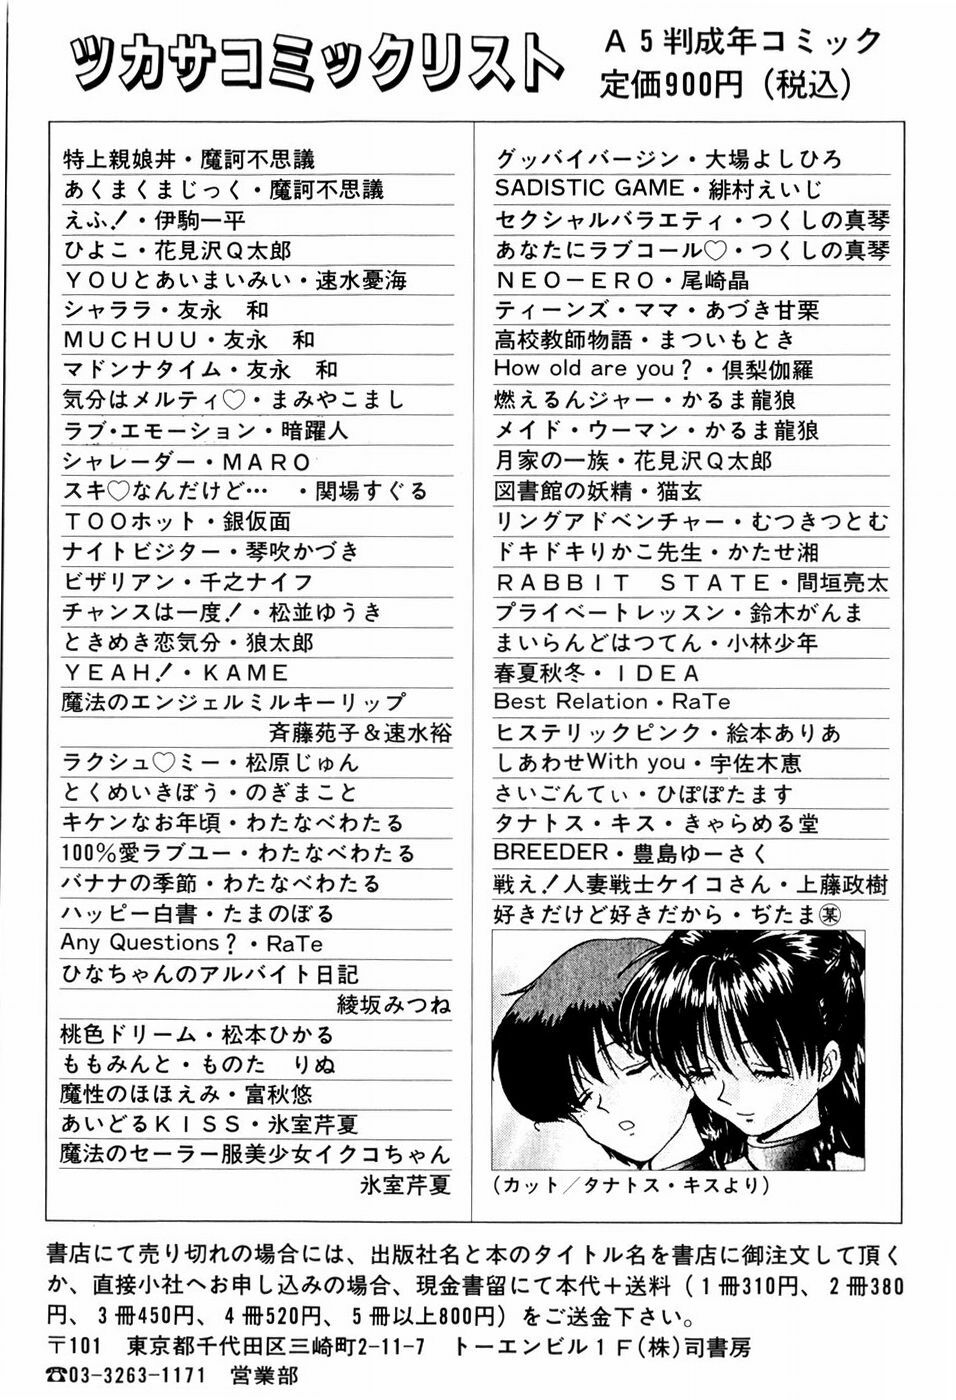 ツカサコミックリスト
A5判成年コミック
定価900円（税込）
特上親娘丼・魔訶不思議
あくまくまじっく・魔訶不思議
えふ！・伊駒一平
ひよこ・花見沢Q太郎
YOUとあいまいみい・速水憂海
シャララ・友永　和
MUCHUU・友永　和
マドンナタイム・友永　和
気分はメルティ♡・まみやこまし
ラブ・エモーション・暗躍人
シャレーダー・MARO
スキ♡なんだけど…　・関場すぐる
TOOホット・銀仮面
ナイトビジター・琴吹かづき
ビザリアン・千之ナイフ
チャンスは一度！・松並ゆうき
ときめき恋気分・狼太郎
YEAH！・KAME
魔法のエンジェルミルキーリップ
斉藤苑子＆速水裕
ラクシュ♡ミー・松原じゅん
とくめいきぼう・のぎまこと
キケンなお年頃・わたなべわたる
100％愛ラブユー・わたなべわたる
バナナの季節・わたなべわたる
ハッピー白書・たまのぼる
Any Questions？・RaTe
ひなちゃんのアルバイト日記
綾坂みつね
桃色ドリーム・松本ひかる
ももみんと・ものた　りぬ
魔性のほほえみ・富秋悠
あいどるKISS・氷室芹夏
魔法のセーラー服美少女イクコちゃん
氷室芹夏
グッバイバージン・大場よしひろ
SADISTIC GAME・緋村えいじ
セクシャルバラエティ・つくしの真琴
あなたにラブコール♡・つくしの真琴
NEO－ERO・尾崎晶
ティーンズ・ママ・あづき甘栗
高校教師物語・まついもとき
How old are you？・倶梨伽羅
燃えるんジャー・かるま龍狼
メイド・ウーマン・かるま龍狼
月家の一族・花見沢Q太郎
図書館の妖精・猫玄
リングアドベンチャー・むつきつとむ
ドキドキりかこ先生・かたせ湘
RABBIT　STATE・間垣亮太
プライベートレッスン・鈴木がんま
まいらんどはつてん・小林少年
春夏秋冬・IDEA
Best Relation・RaTe
ヒステリックピンク・絵本ありあ
しあわせWith you・宇佐木恵
さいごんてぃ・ひぽぽたます
タナトス・キス・きゃらめる堂
BREEDER・豊島ゆーさく
戦え！人妻戦士ケイコさん・上藤政樹
好きだけど好きだから・ぢたま㊣某
（カット／タナトス・キスより）
書店にて売り切れの場合には、出版社名と本のタイトル名を書店に御注文して頂く
か、直接小社へお申し込みの場合、現金書留にて本代＋送料（1冊310円、2冊380
円、3冊450円、4冊520円、5冊以上800円）をご送金下さい。
〒101　東京都千代田区三崎町2-11-7　トーエンビル1F（株）司書房
☎03-3263-1171　営業部